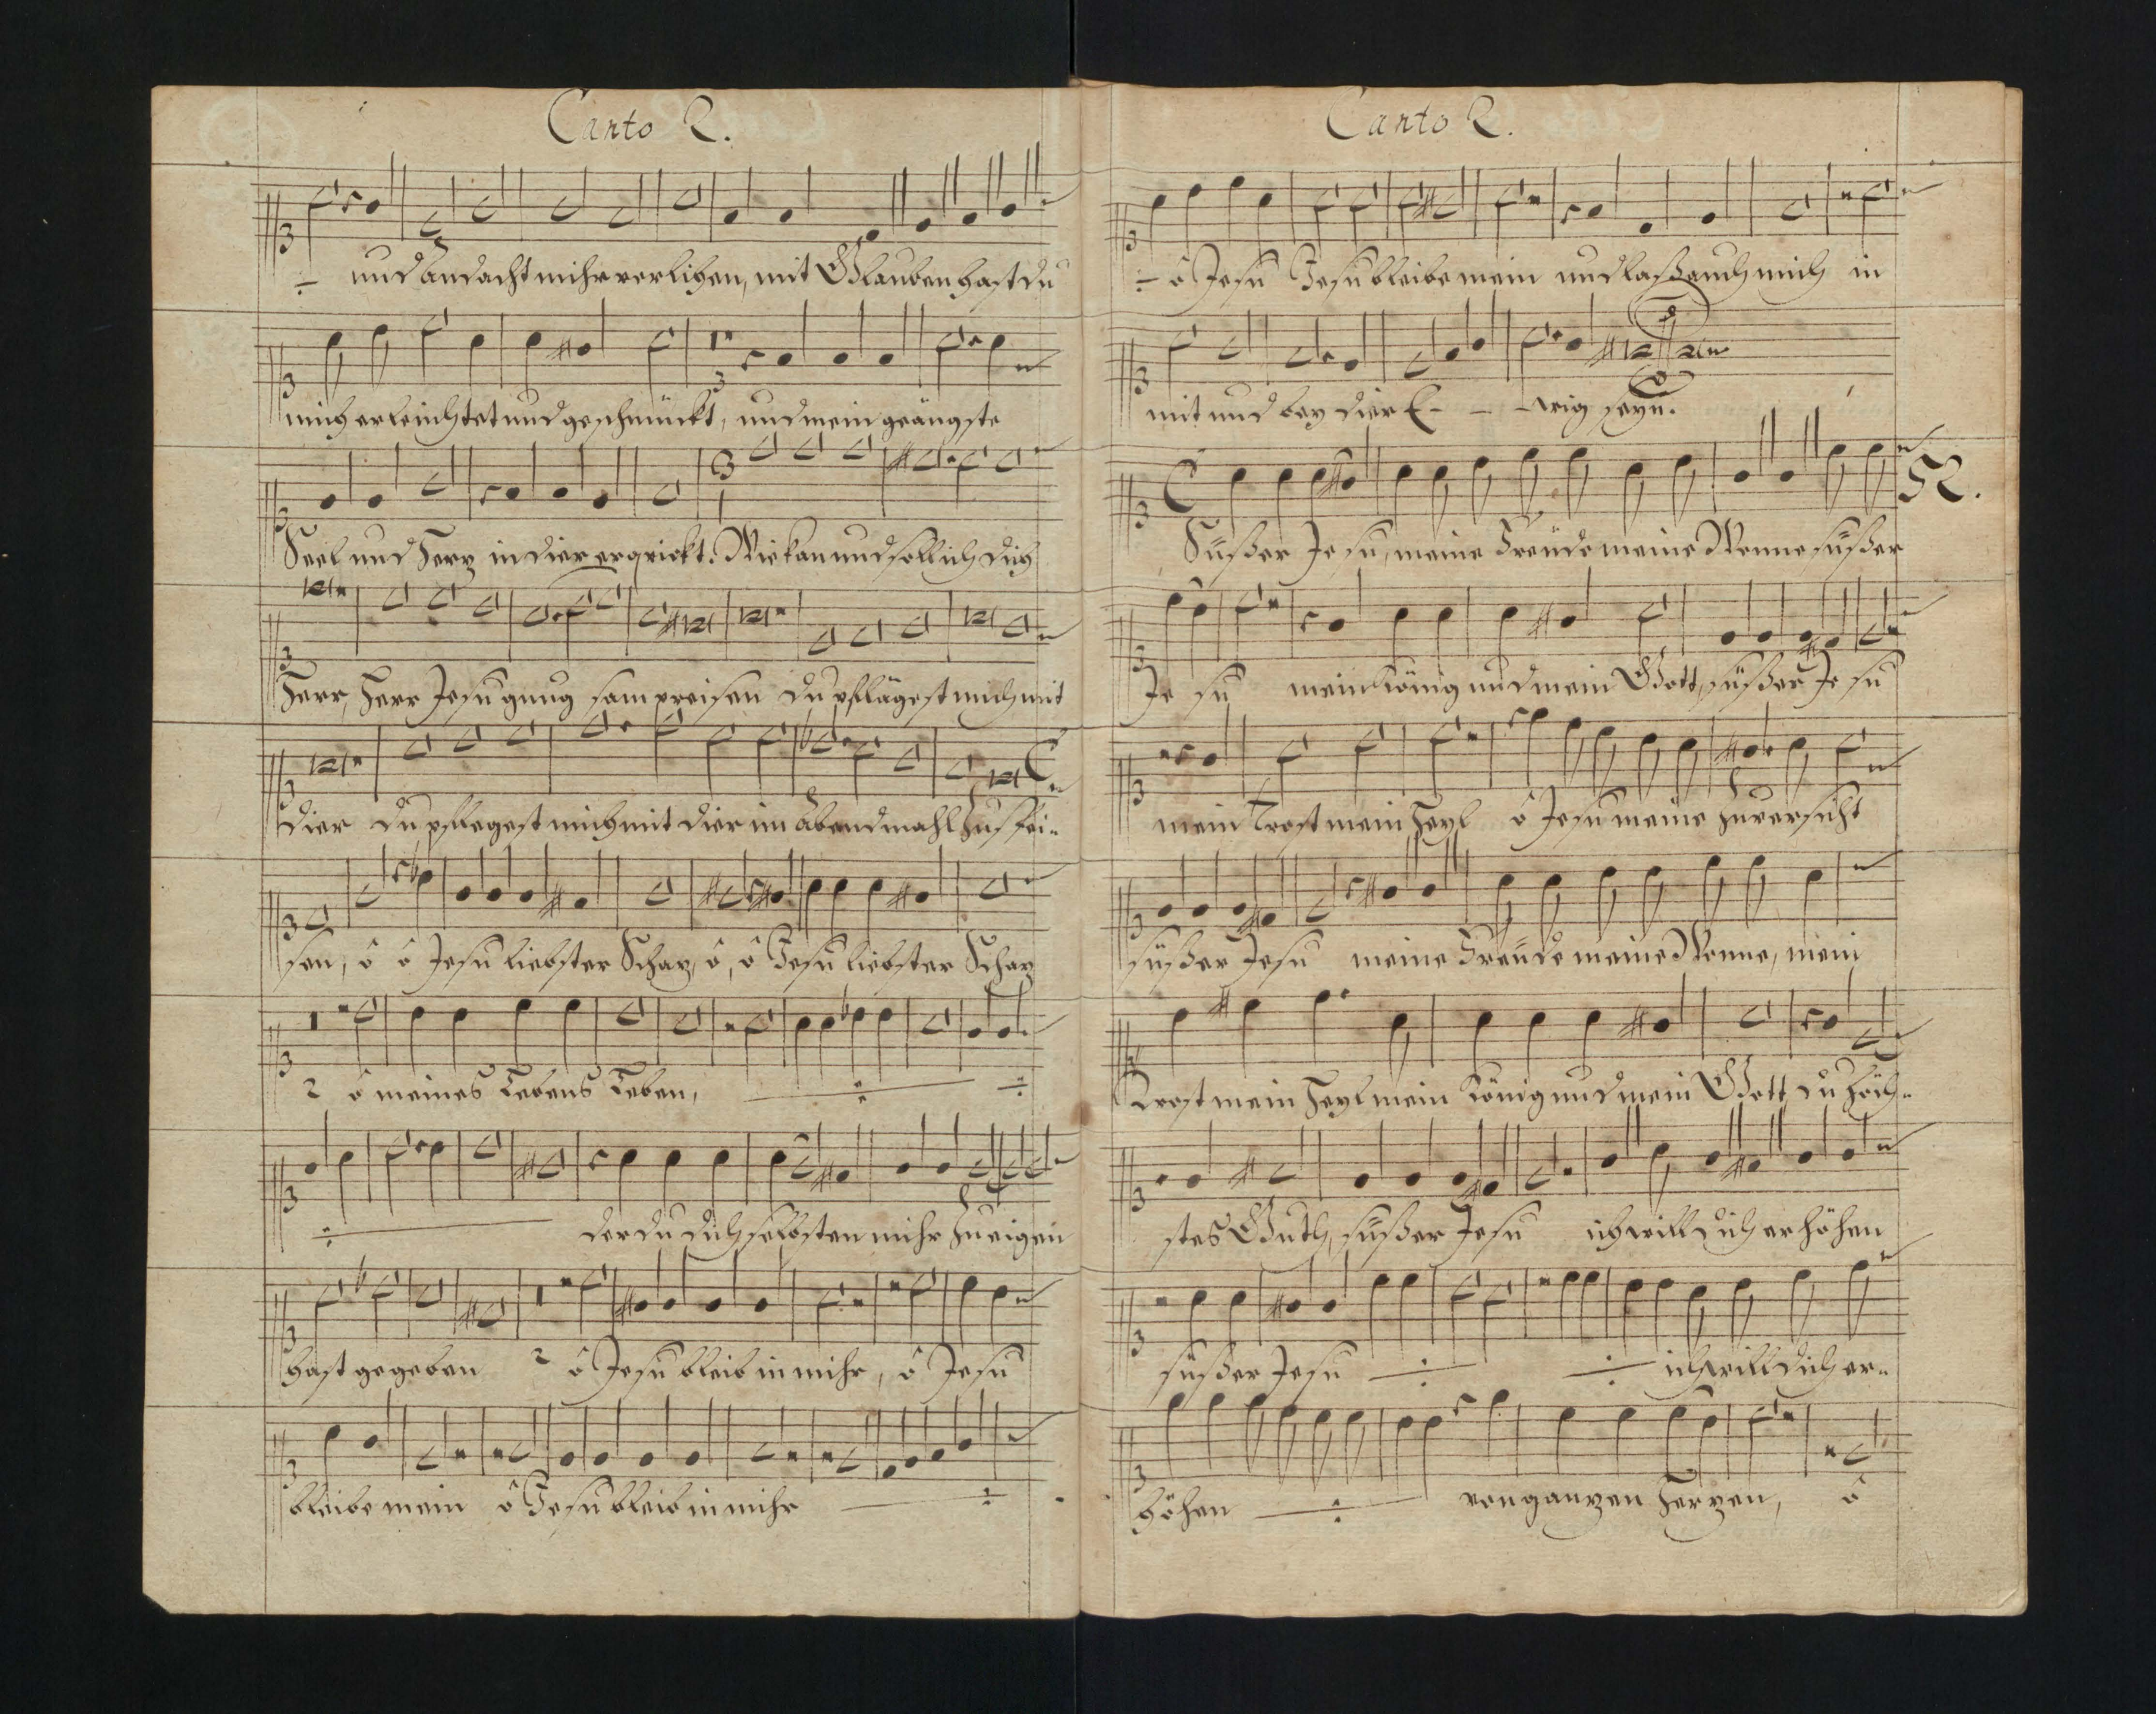 Canto 2.
÷ und Andacht mihr verlihen, mit Glauben hast du
mich erleuchtet und geschmückt, und mein geängste
Seel und Herz in dier erqvickt. Wie kan und soll ich dich
Herr, Herr Jesu gnug sam preisen du pflägest mich mit
dier du pflegest mich mit dier im Abendmahl zu spei-
sen, ô ô Jesu liebster Schaz, ô, ô Jesu liebster Schaz
2 ô meines Lebens Leben, ÷ ÷
÷ der du dich selbsten mihr zu eigen
hast gegeben 2 ô Jesu bleib in mihr, ô Jesu
bleibe mein ô Jesu bleib in mihr ÷
Canto 2.
÷ ô Jesu Jesu bleibe mein und laß auch mich in
mit und bey dier E- - -wig seyn.
52.
Süßer Jesu, meine Freüde meine Wonne süßer
Je su mein König und mein Gott, süßer Je su
mein Trost mein Heyl ô Jesu meine Zuversicht
süßer Jesu meine Freüde meine Wonne, mein
Trost mein Heyl mein König und mein Gott du höch-
stes Guth, süßer Jesu ich will dich erhöhen
süßer Jesu ÷ ÷ ich will dich er-
höhen ÷ von ganzen Herzen, ô